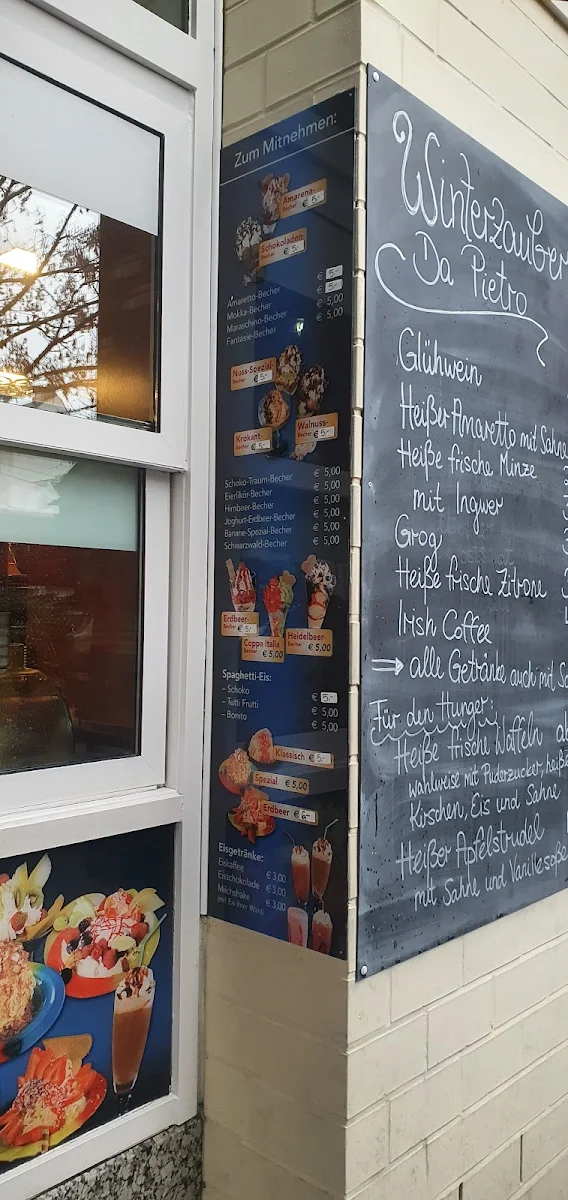 Zum Mitnehmen:
Amarena-
Becher € 5,-
Schokoladen-
Becher € 5,-
Amaretto-Becher € 5,-
Mokka-Becher € 5,-
Maraschino-Becher € 5,00
Fantasie-Becher € 5,00
Nuss-Spezial
Becher € 5,-
Walnuss-
Becher € 5,-
Krokant-
Becher € 5,-
Schoko-Traum-Becher € 5,00
Eierlikör-Becher € 5,00
Himbeer-Becher € 5,00
Joghurt-Erdbeer-Becher € 5,00
Banane-Spezial-Becher € 5,00
Schwarzwald-Becher € 5,00
Erdbeer-
Becher € 5,-
Coppa Italia
Becher € 5,00
Heidelbeer-
Becher € 5,00
Spaghetti-Eis:
– Schoko € 5,-
– Tutti Frutti € 5,00
– Bonito € 5,00
Klassisch € 5,-
Spezial € 5,00
Erdbeer €
Eisgetränke:
Eiskaffee € 3,00
Eisschokolade € 3,00
Milchshake € 3,00
(mit Eis Ihrer Wahl)
Winterzauber
Da Pietro
Glühwein
Heißer Amaretto mit Sahne
Heiße frische Minze
mit Ingwer
Grog
Heiße frische Zitrone
Irish Coffee
⇒ alle Getränke auch mit
Für den Hunger:
Heiße frische Waffeln ab
wahlweise mit Puderzucker, heiße
Kirschen, Eis und Sahne
Heißer Apfelstrudel
mit Sahne und Vanillesoße